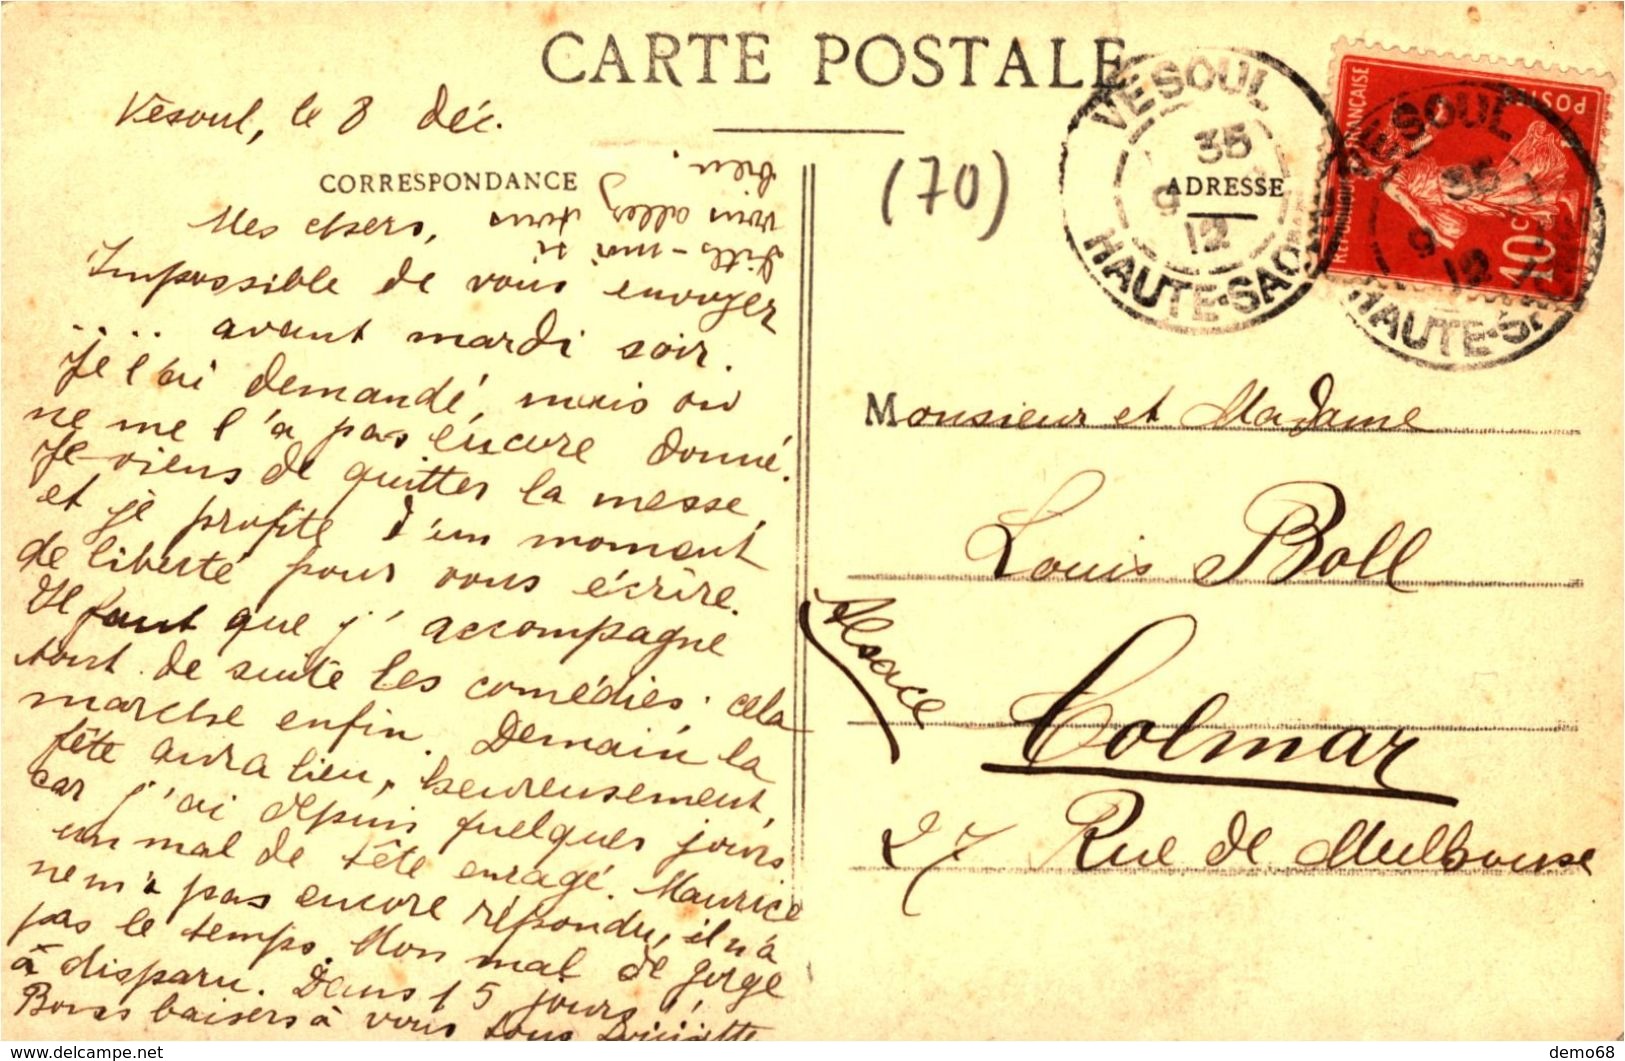 CARTE POSTALE
Vesoul, le 8 déc.
CORRESPONDANCE
Mes chers,
Impossible de vous envoyer
.... avant mardi soir.
Je l'ai demandé, mais on
ne me l'a pas encore donné.
Je viens de quitter la messe,
et je profite d'un moment
de liberté pour vous écrire.
Il faut que j'accompagne
tout de suite les comédies; cela
marche enfin. Demain la
fête aura lieu, heureusement,
car j'ai depuis quelques jours
un mal de tête enragé. Maurice
ne m'a pas encore répondu, il n'a
pas le temps. Mon mal de gorge
a disparu. Dans 15 jours!
Bons baisers à vous tous
Dites-moi si
vous allez tous
bien.
(70)
VESOUL
35
9
12
HAUTE-SAONE
ADRESSE
REPUBLIQUE FRANÇAISE
POSTES
10c
VESOUL
35
9 12
HAUTE-SA
Monsieur et Madame
Louis Boll
Alsace
Colmar
27 Rue de Mulhouse
www.delcampe.net
demo68